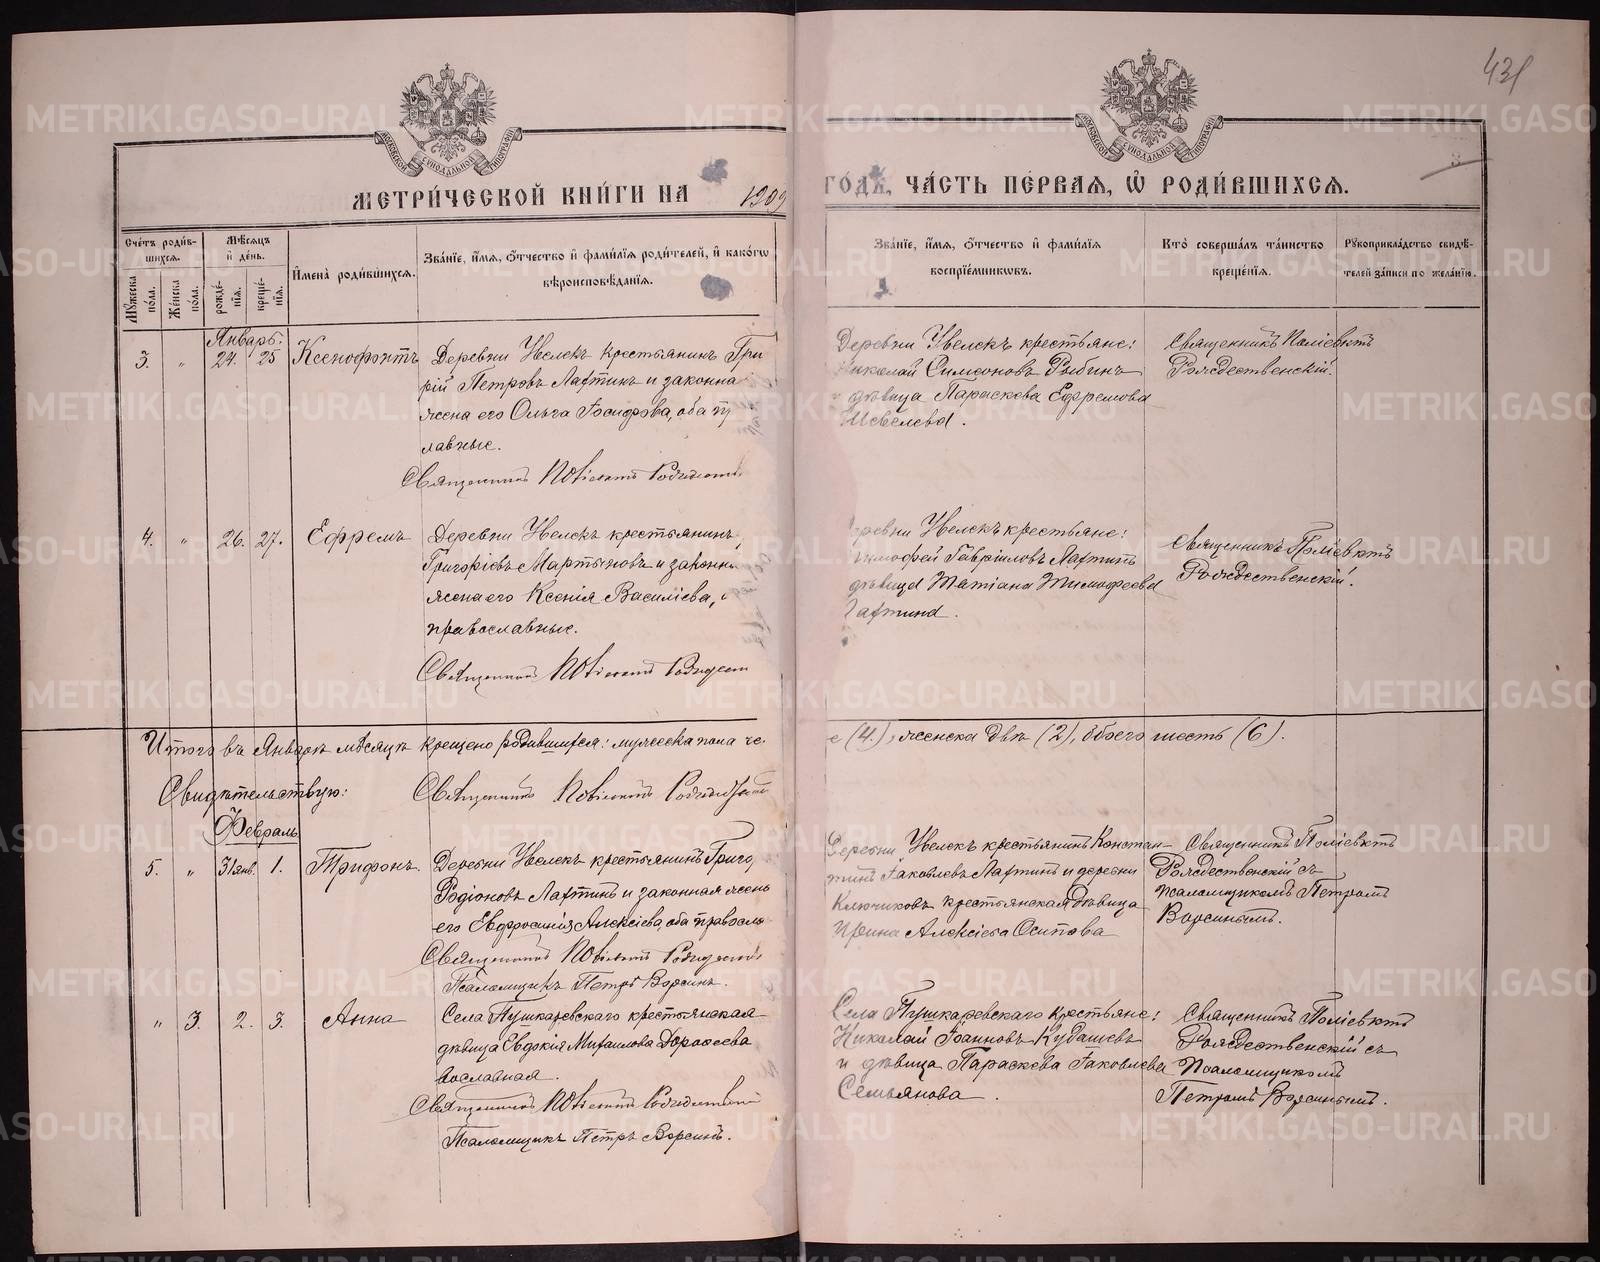 431
МОСКОВСКОЙ СѴНОДАЛЬНОЙ ТИПОГРАФІИ
МОСКОВСКОЙ СѴНОДАЛЬНОЙ ТИПОГРАФІИ
МЕТРИ́ЧЕСКОЙ КНИ́ГИ НА 1909 ГО́ДЪ, ЧА́СТЬ ПЕ́РВАЯ, Ѽ РОДИ́ВШИХСЯ.
Сче́тъ роди́в-шихся.
Му́жеска по́ла.
Же́нска по́ла.
Мѣ́сяцъ и҆ де́нь.
рожде́нїѧ.
креще́нїѧ.
И҆мена̀ роди́вшихся.
Зва́нїе, и҆́мя, ѻ҆́тчество и҆ фами́лїя роди́телей, и҆ како́гѡ
вѣроисповѣ́данїя.
Зва́нїе, и҆́мя, ѻ҆́тчество и҆ фами́лїя
воспрїе́мникѡвъ.
Кто̀ соверша́лъ та́инство
креще́нїя.
Рꙋкоприкла́дство свидѣ́-
телей за́писи по жела́нїю.
Январь.
3. „ 24. 25 Ксенофонтъ
Деревни Увелекъ крестьянинъ Гри
рій Петровъ Лаптинъ и законна
жена его Ольга Іосифова, оба п
лавные.
Священникъ Поліевктъ Рождеств
Деревни Увелекъ крестьяне:
Николай Симеоновъ Рыбинъ
и дѣвица Параскева Ефремова
Шевелева.
Священникъ Поліевктъ
Рождественскій.
4. „ 26. 27. Ефремъ
Деревни Увелекъ крестьянинъ
Григоріевъ Мартыновъ и законн
жена его Ксенія Василіева,
православные.
Священникъ Поліевктъ Рождест
ревни Увелекъ крестьяне:
имофей Гавріиловъ Лаптинъ
дѣвица Татіана Тимофеева
Лаптина.
Священникъ Поліевктъ
Рождественскій.
Итого въ Январѣ мѣсяцѣ крещено родившихся: мужеска пола че-
е (4.), женска двѣ (2), обоего шесть (6).
Свидѣтельствую:
Священникъ Поліевктъ Рождественскій
Февраль
5. „ 31 янв. 1. Трифонъ
Деревни Увелекъ крестьянинъ Григо
Родіоновъ Лаптинъ и законная жена
его Евфросинія Алексіева, оба правосла
Священникъ Поліевктъ Рождеств
Псаломщикъ Петръ Ворсинъ.
Деревни Увелекъ крестьянинъ Констан-
тинъ Іаковлевъ Лаптинъ и деревни
Ключиковъ крестьянская дѣвица
Ирина Алексіева Осипова
Священникъ Поліевктъ
Рождественскій съ
псаломщикомъ Петромъ
Ворсинымъ.
„ 3. 2. 3. Анна
Села Пушкаревскаго крестьянская
дѣвица Евдокія Михаилова Дорофеева
вославная.
Священникъ Поліевктъ Рождественскій
Псаломщикъ Петръ Ворсинъ.
Села Пушкаревскаго крестьяне:
Николай Іоанновъ Кудашевъ
и дѣвица Параскева Іаковлева
Семьянова.
Священникъ Поліевктъ
Рождественскій съ
псаломщикомъ
Петромъ Ворсинымъ.
METRIKI.GASO-URAL.RU